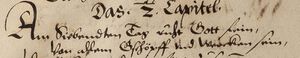 Das. 2. Capitel.
Am Siebendten Tag ruhet Gott fein,
Von allem Gschöpff und Wercken sein,